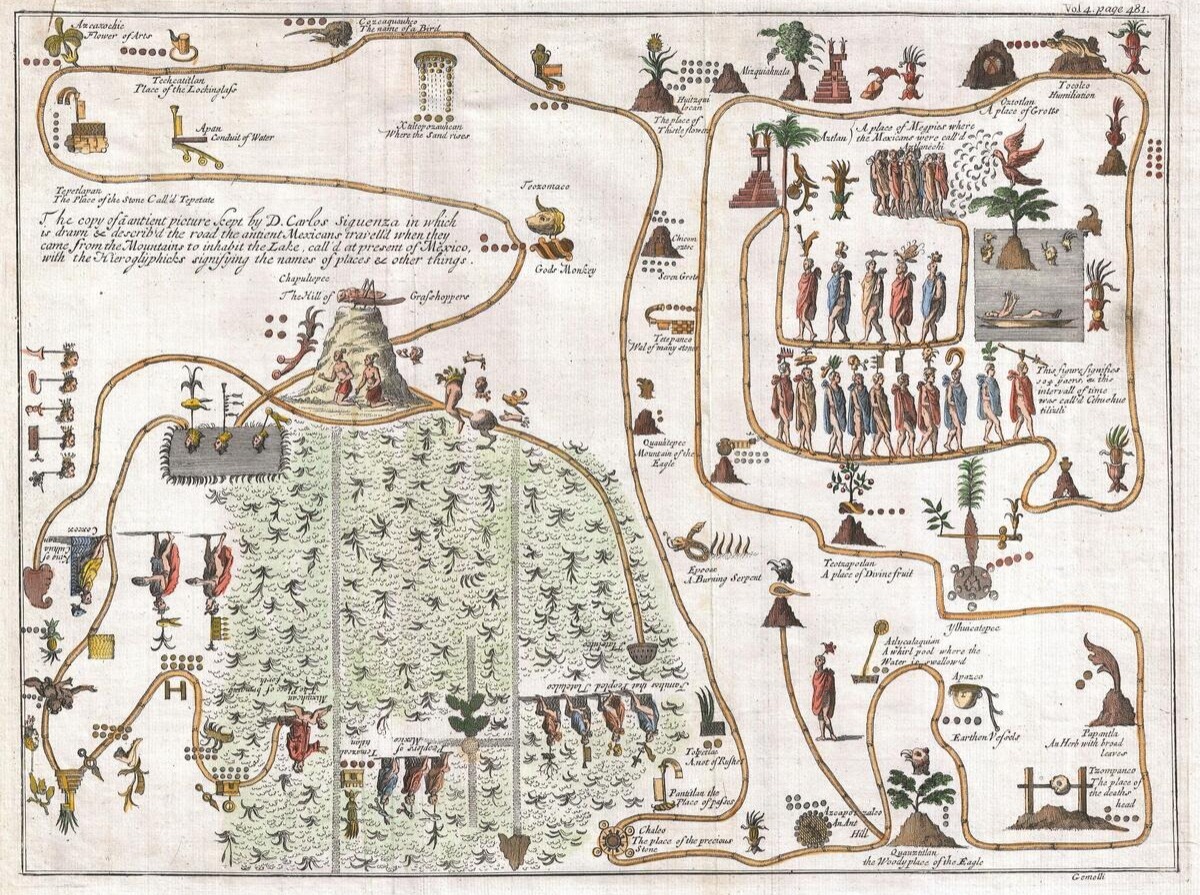 Vol 4. page 481.
Azcaxochic
Flower of Arts
Cozcaquauhco
The name of a Bird
Techcatitlan
Place of the Lockinglass
Apan
Conduit of Water
Xaltepozauhcan
Where the Sand rises
Huitzqui
locan
The place of
Thistle flowers
Mizquiahnala
Oztotlan
A place of Grotts
Tocolco
Humiliation
Aztlan) A place of Megpies where
the Mexicans were call'd
Aztlanechi
Tepetlapan
The Place of the Stone Call'd Tepetate
The copy of a antient picture kept by D. Carlos Siguenza in which
is drawn & describ'd the road the antient Mexicans travell'd when they
came from the Mountains to inhabit the Lake, call'd at present of Mexico,
with the Hieroglyphicks signifying the names of places & other things.
Teozomaco
Gods Monkey
Chicom
oztoc
Seven Grots
Chapultepec
The Hill of Grashoppers
Tetepanco
Wal of many stones
This figure signifies
104 years, & this
intervall of time
was call'd Cihuehue
tiliztli
Quauhtepec
Mountain of the
Eagle
Cocox
King of
Culhua
Epcoac
A Burning Serpent
Teotzapotlan
A place of Divine fruit
Ylhuicatepec
Atlycalaquian
A whirl pool where the
Water is swallow'd
Apazco
Earthen Vessels
Papantla
An Herb with broad
leaves
Families that Peopled Tlatelulco
Peoplers of
Mexico
Tenuchti
tlan
Tolpetlac
A not of Rushes
Pantitlan the
Place of passes
Tzompanco
The place of
the deaths
head
Azcapotzalco
An Ant
Hill
Chalco
The place of the precious
Stone
Quauztitlan
the Woody place of the Eagle
Gemelli